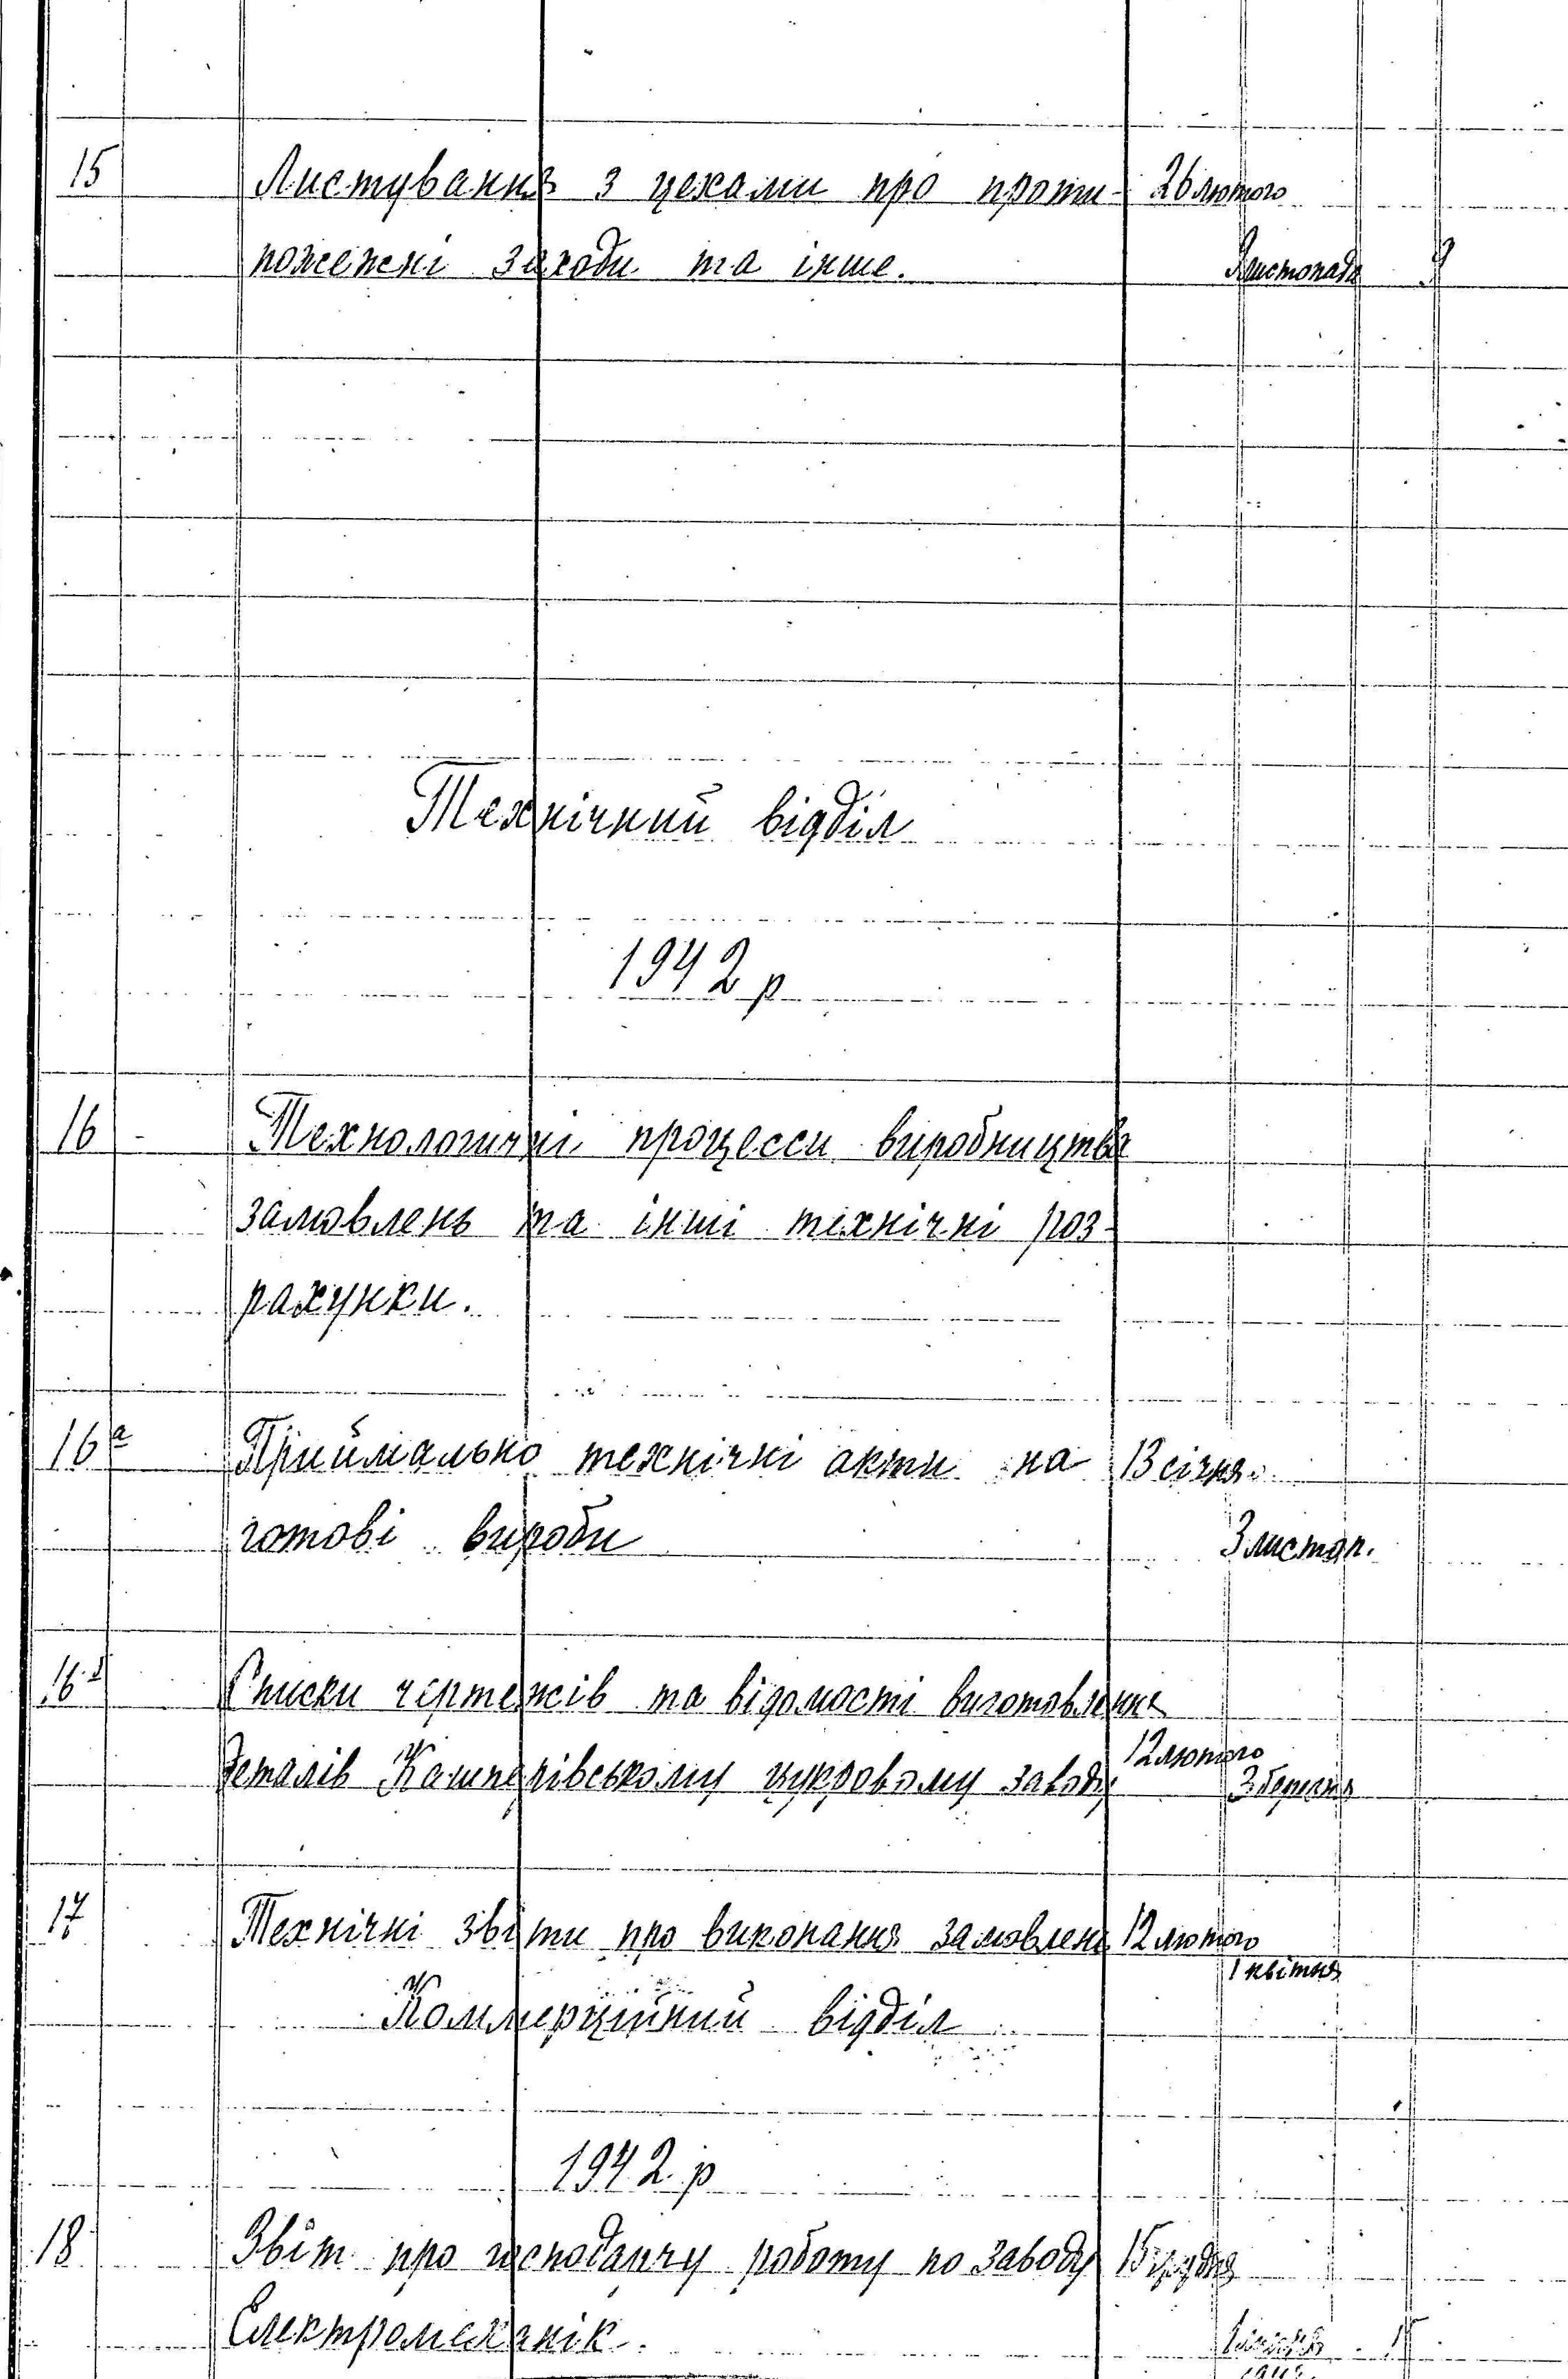 15 Листування з цехами про проти- 26 лютого
пожежні заходи та інше. листопада 9
Технічний відділ
1942 р
16 Технологичні процесси виробництва
замовлень та інші технічні роз-
рахунки.
16а Приймально технічні акти на 13 січня
готові вироби 3 листоп.
16 Списки чертежів та відомості виготовлення
деталів Кашперівському цукровому заводу 12 лютого
3 березня
17 Технічні звіти про виконання замовлень 12 лютого
1 квітня
Коммерційний відділ
1942 р
18 Звіт про господарчу роботу по заводу 15 грудня
Електромеханік.